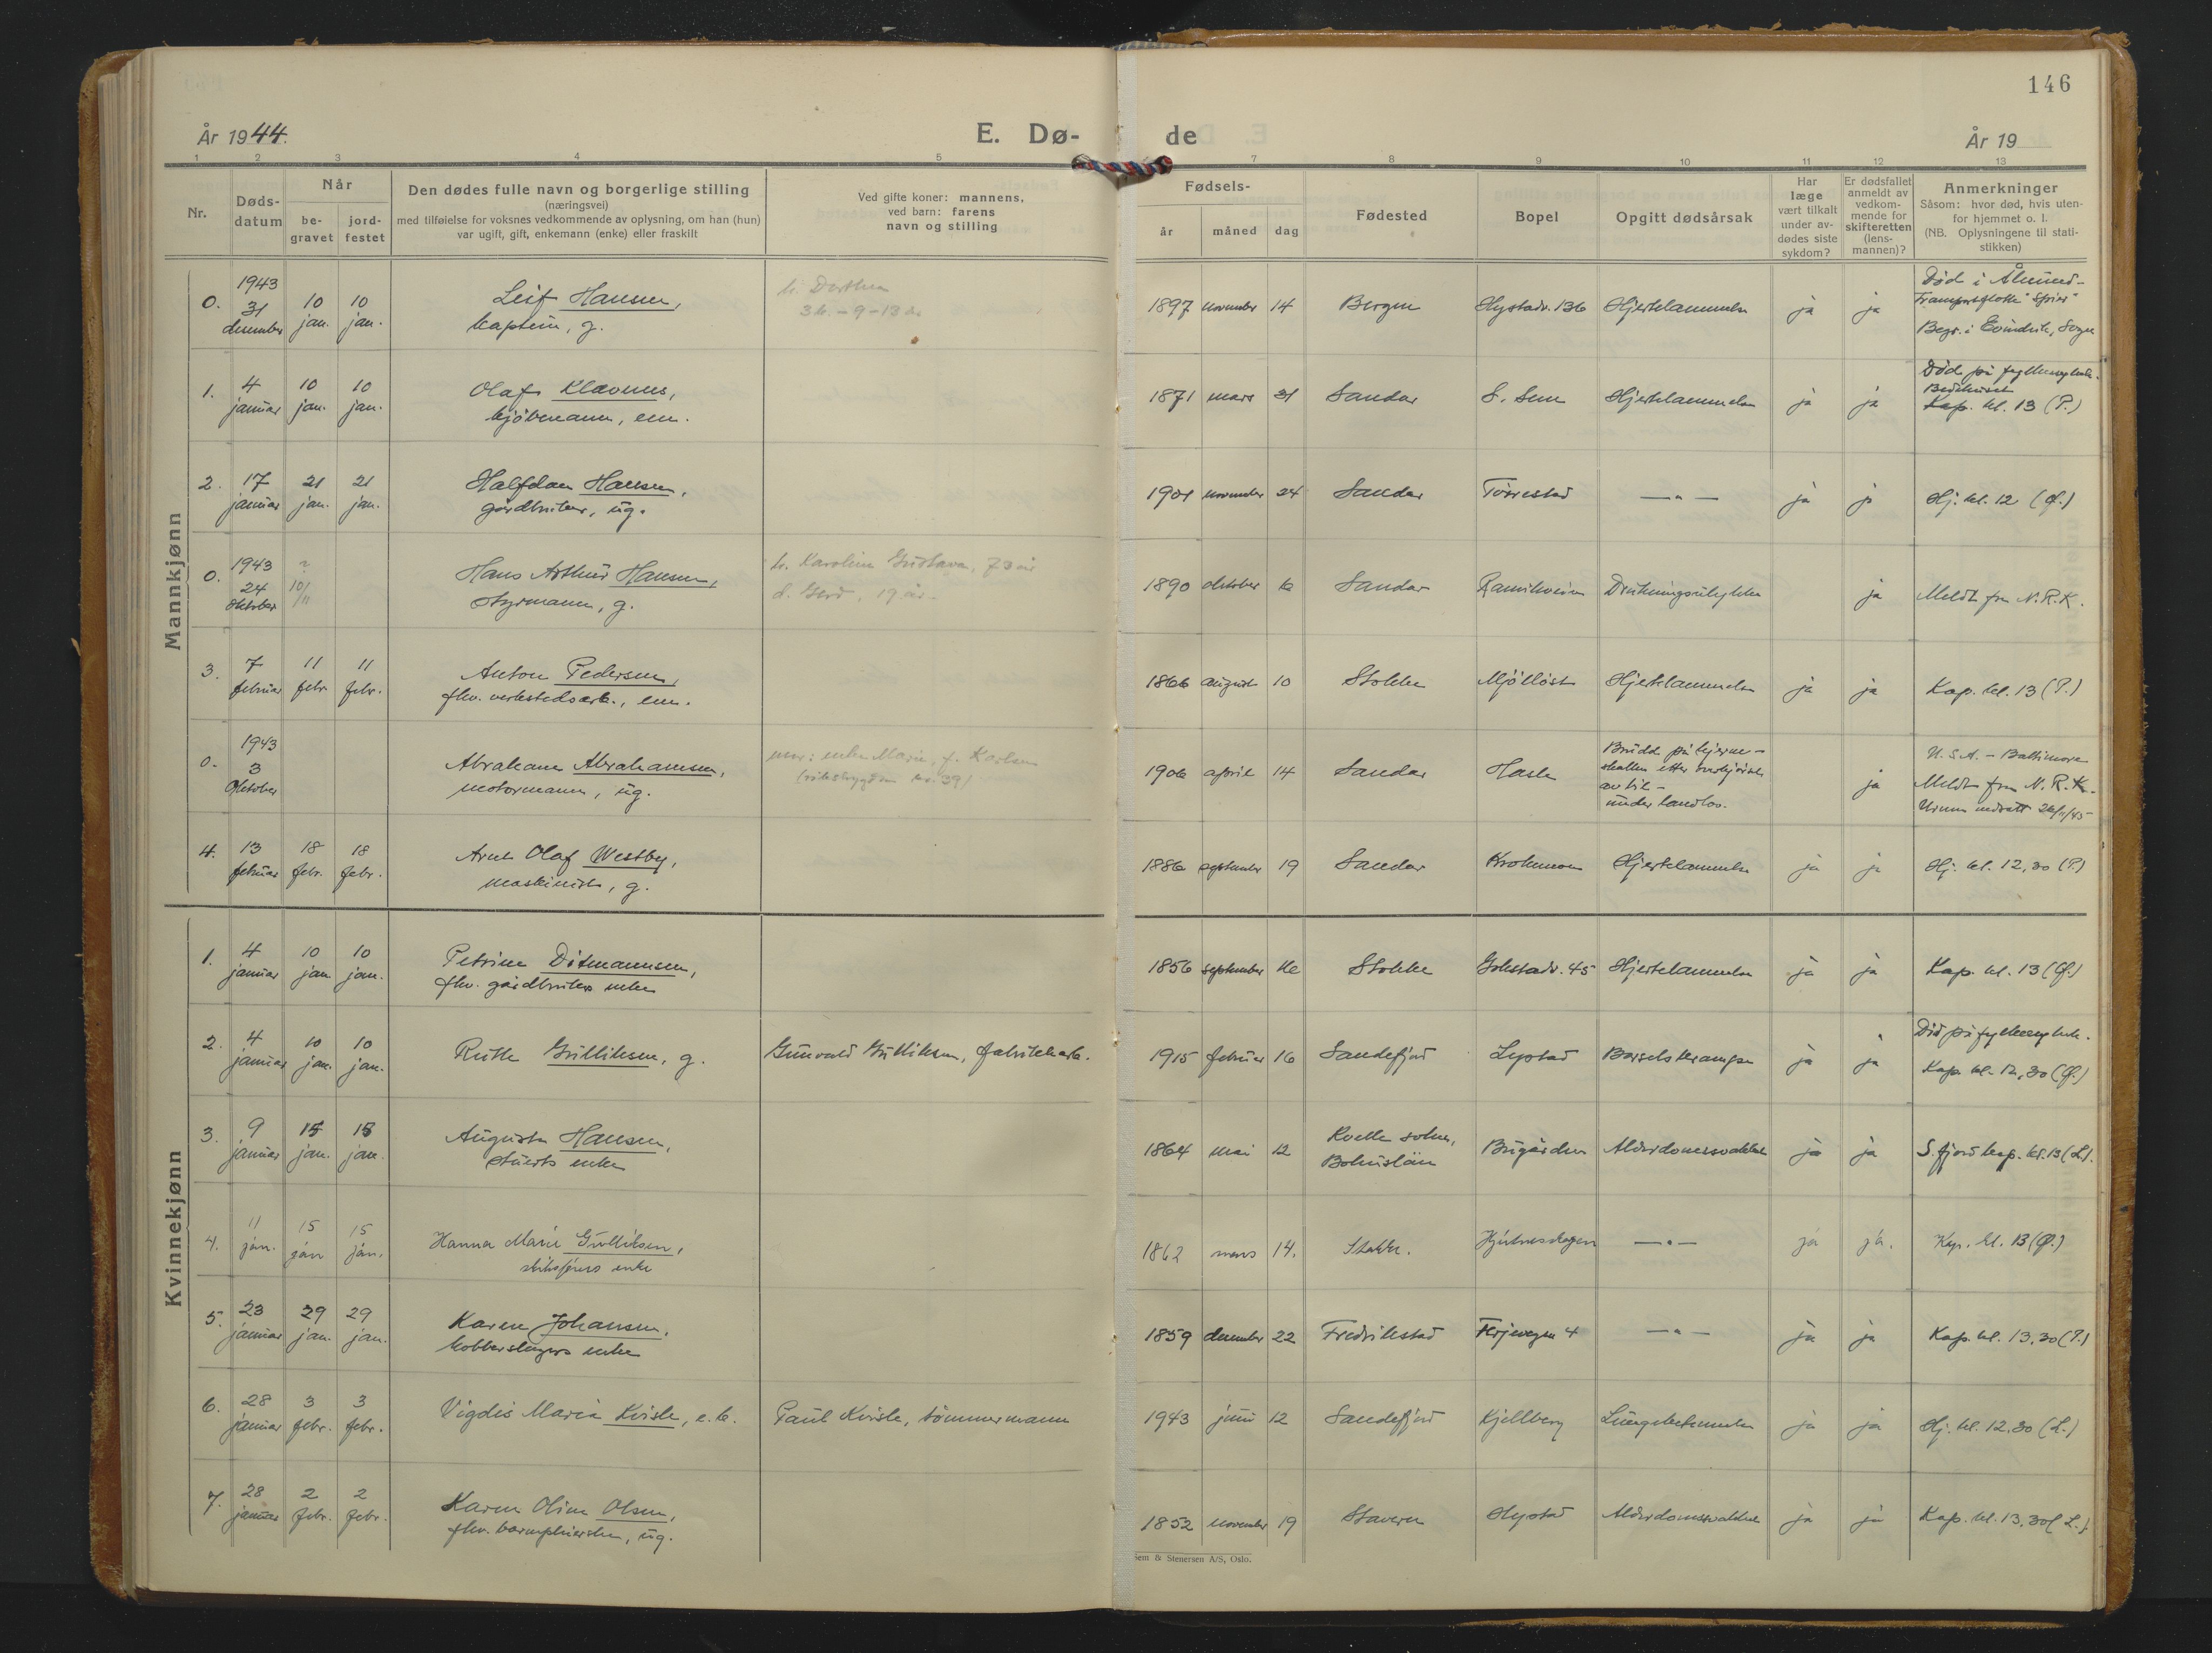 146
År 1944.
E. Dø-
de
År 19
1 2 3 4 5 7 8 9 10 11 12 13
Nr.
Døds-
datum
Når
be-
gravet
jord-
festet
Den dødes fulle navn og borgerlige stilling
(næringsvei)
med tilføielse for voksnes vedkommende av oplysning, om han (hun)
var ugift, gift, enkemann (enke) eller fraskilt
Ved gifte koner: mannens,
ved barn: farens
navn og stilling
Fødsels-
år
måned
dag
Fødested
Bopel
Opgitt dødsårsak
Har
læge
vært tilkalt
under av-
dødes siste
sykdom?
Er dødsfallet
anmeldt av
vedkom-
mende for
skifteretten
(lens-
mannen)?
Anmerkninger
Såsom: hvor død, hvis uten-
for hjemmet o. l.
(NB. Oplysningene til stati-
stikken)
Mannkjønn
0. 1943 31 desember 10 jan. 10 jan.
Leif Hansen,
kaptein, g.
1897 november 14 Bergen Hystadv. 136 Hjertelammelse ja ja
Død i Ålesund-
Begr. i Eivindvik, Sogn
1. 4 januar 10 jan. 10 jan.
Olaf Klavenes,
kjøbmann, em.
1871 mars 31 Sandar S. Sem Hjertelammelse ja ja
Død på fylkessykeh.
Bedehuset
Kap. kl. 13 (P.)
2. 17 januar 21 jan. 21 jan.
Halfdan Hansen,
gårdbruker, ug.
1901 november 24 Sandar Tørrestad — " — ja ja Hj. kl. 12 (Ø.)
0. 1943 24 oktober ? 10/11
Hans Arthur Hansen,
styrmann, g.
h. Karoline Gustava, 73 år
d. Gerd, 19 år -
1890 oktober 6 Sandar Ramikveien Drukningsulykke ja Meldt fra N.R.K.
3. 7 februar 11 febr. 11 febr.
Anton Pedersen,
fhv. verkstedsarb., em.
1866 august 10 Stokke Mjølløst Hjertelammelse ja ja Kap. kl. 13 (P.)
0. 1943 3 Oktober
Abraham Abrahamsen,
motormann, ug.
mor: enke Marie, f. Karlsen
1906 april 14 Sandar Hasle
Brudd på hjerne-
skallen etter overkjørsel
av bil -
under landlov.
ja
U.S.A. - Baltimore
Meldt fra N.R.K.
Urnen nedsatt 26/11/45
4. 13 februar 18 febr. 18 febr.
Arnt Olaf Westby,
maskinist, g.
1886 september 19 Sandar Krokemoa Hjertelammelse ja ja Hj. kl. 12,30 (P.)
Kvinnekjønn
1. 4 januar 10 jan. 10 jan.
Petrine Ditmannsen,
fhv. gårdbrukers enke
1856 september 16 Stokke Gokstadv. 45 Hjertelammelse ja ja Kap. kl. 13 (Ø.)
2. 4 januar 10 jan. 10 jan.
Ruth Gulliksen, g. Gunvald Gulliksen, fabrikkarb.
1915 februar 16 Sandefjord Lystad Barselskrampe ja ja
Død på fylkessykeh.
Kap. kl. 12,30 (Ø.)
3. 9 januar 15 jan. 15 jan.
Augusta Hansen,
stuerts enke
1864 mai 12
Kville sokn,
Bohuslän
Bugården Alderdomssvakhet ja ja S.fjord kap. kl. 13 (L.)
4. 11 jan. 15 jan 15 jan.
Hanna Marie Gulliksen,
skibsførers enke
1862 mars 14. Stokke. Hjertnesskogen — " — ja ja. Kap. kl. 13 (Ø.)
5. 23 januar 29 jan. 29 jan.
Karen Johansen,
kobberslagers enke
1859 desember 22 Fredrikstad Ferjevegen 4 — " — ja ja Kap. kl. 13,30 (P.)
6. 28 januar 3 febr. 3 febr.
Vigdis Maria Kvisle, e. b. Paul Kvisle, tømmermann
1943 juni 12 Sandefjord Kjellberg Lungebetennelse ja ja Hj. kl. 12,30 (L.)
7. 28 januar 2 febr. 2 febr.
Karen Oline Olsen,
fhv. barnepleierske, ug.
1852 november 19 Stavern Hystad Alderdomssvakhet ja ja Kap. kl. 13,30 (L.)
Sem & Stenersen A/S, Oslo.